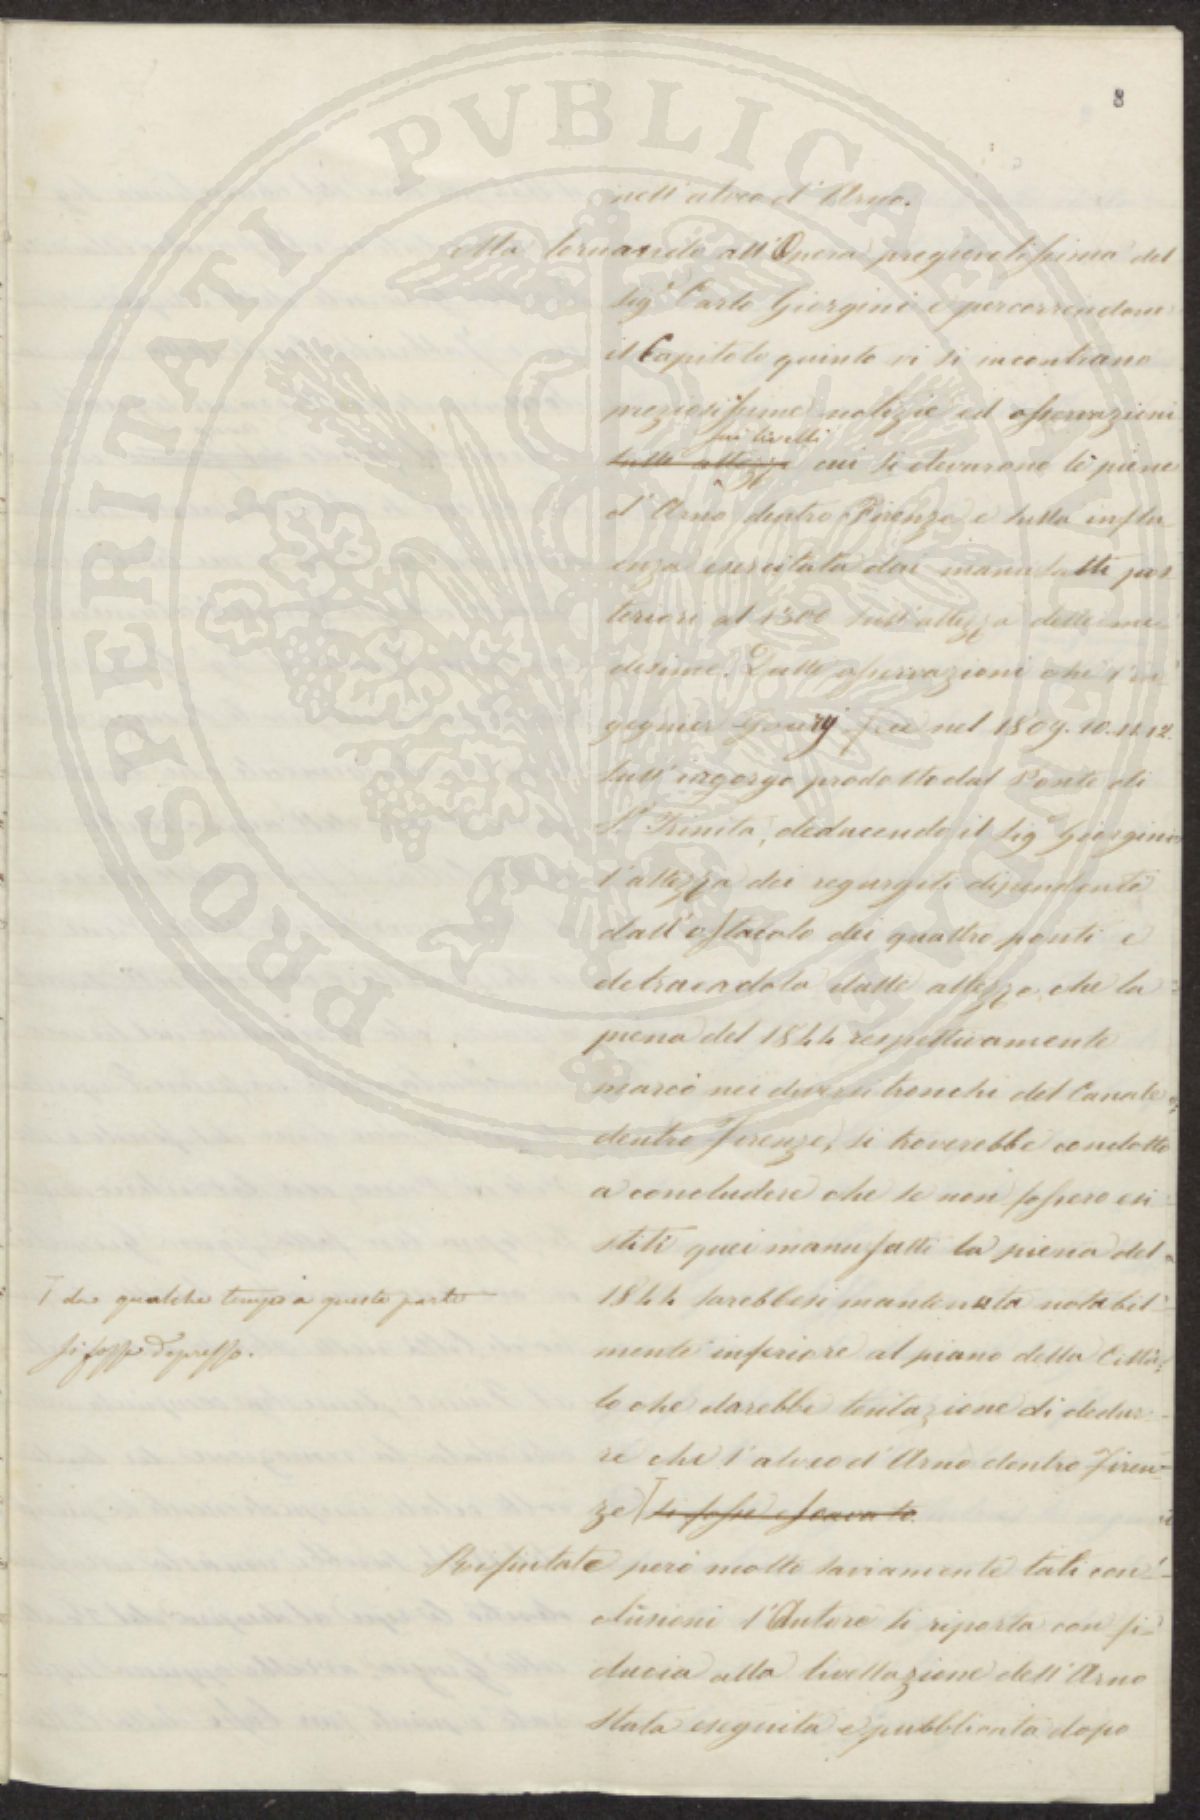 8
nell'alveo d'Arno.
Ma tornando all'Opera pregievolissima del
Sig.r Carlo Giorgini e percorrendone
il Capitolo quinto vi si incontrano
preziosissime notizie ed osservazioni
sui livelli
sulle altezze cui si elevarono le piene
d'Arno dentro Firenze e sulla influ
enza esercitata dai manufatti pos
teriori al 1300 sull'altezza delle me
desime. Dalle osservazioni che l'in
gegner Goury fece nel 1809. 10. 11. 12.
sull'ingorgo prodotto dal Ponte di
S. Trinita, deducendo il Sig.r Giorgini
l'altezza dei regurgiti dipendenti
dall'ostacolo dei quattro ponti e
detraendola dalle altezze che la
piena del 1844 respettivamente
marcò nei diversi tronchi del Canale
dentro Firenze, si troverebbe condotto
a concludere che se non fossero esi
stiti quei manufatti la piena del
1844 sarebbesi mantenuta notabil
mente inferiore al piano della Città,
lo che darebbe tentazione di dedur-
re che l'alveo d'Arno dentro Firen-
ze si fosse escavato.
T da qualche tempo a questa parte
si fosse depresso.
Rifiutate però molto saviamente tali con
clusioni l'Autore si riporta con fi-
ducia alla livellazione dell'Arno
stata eseguita e pubblicata dopo
PROSPERITATI PVBLICAE